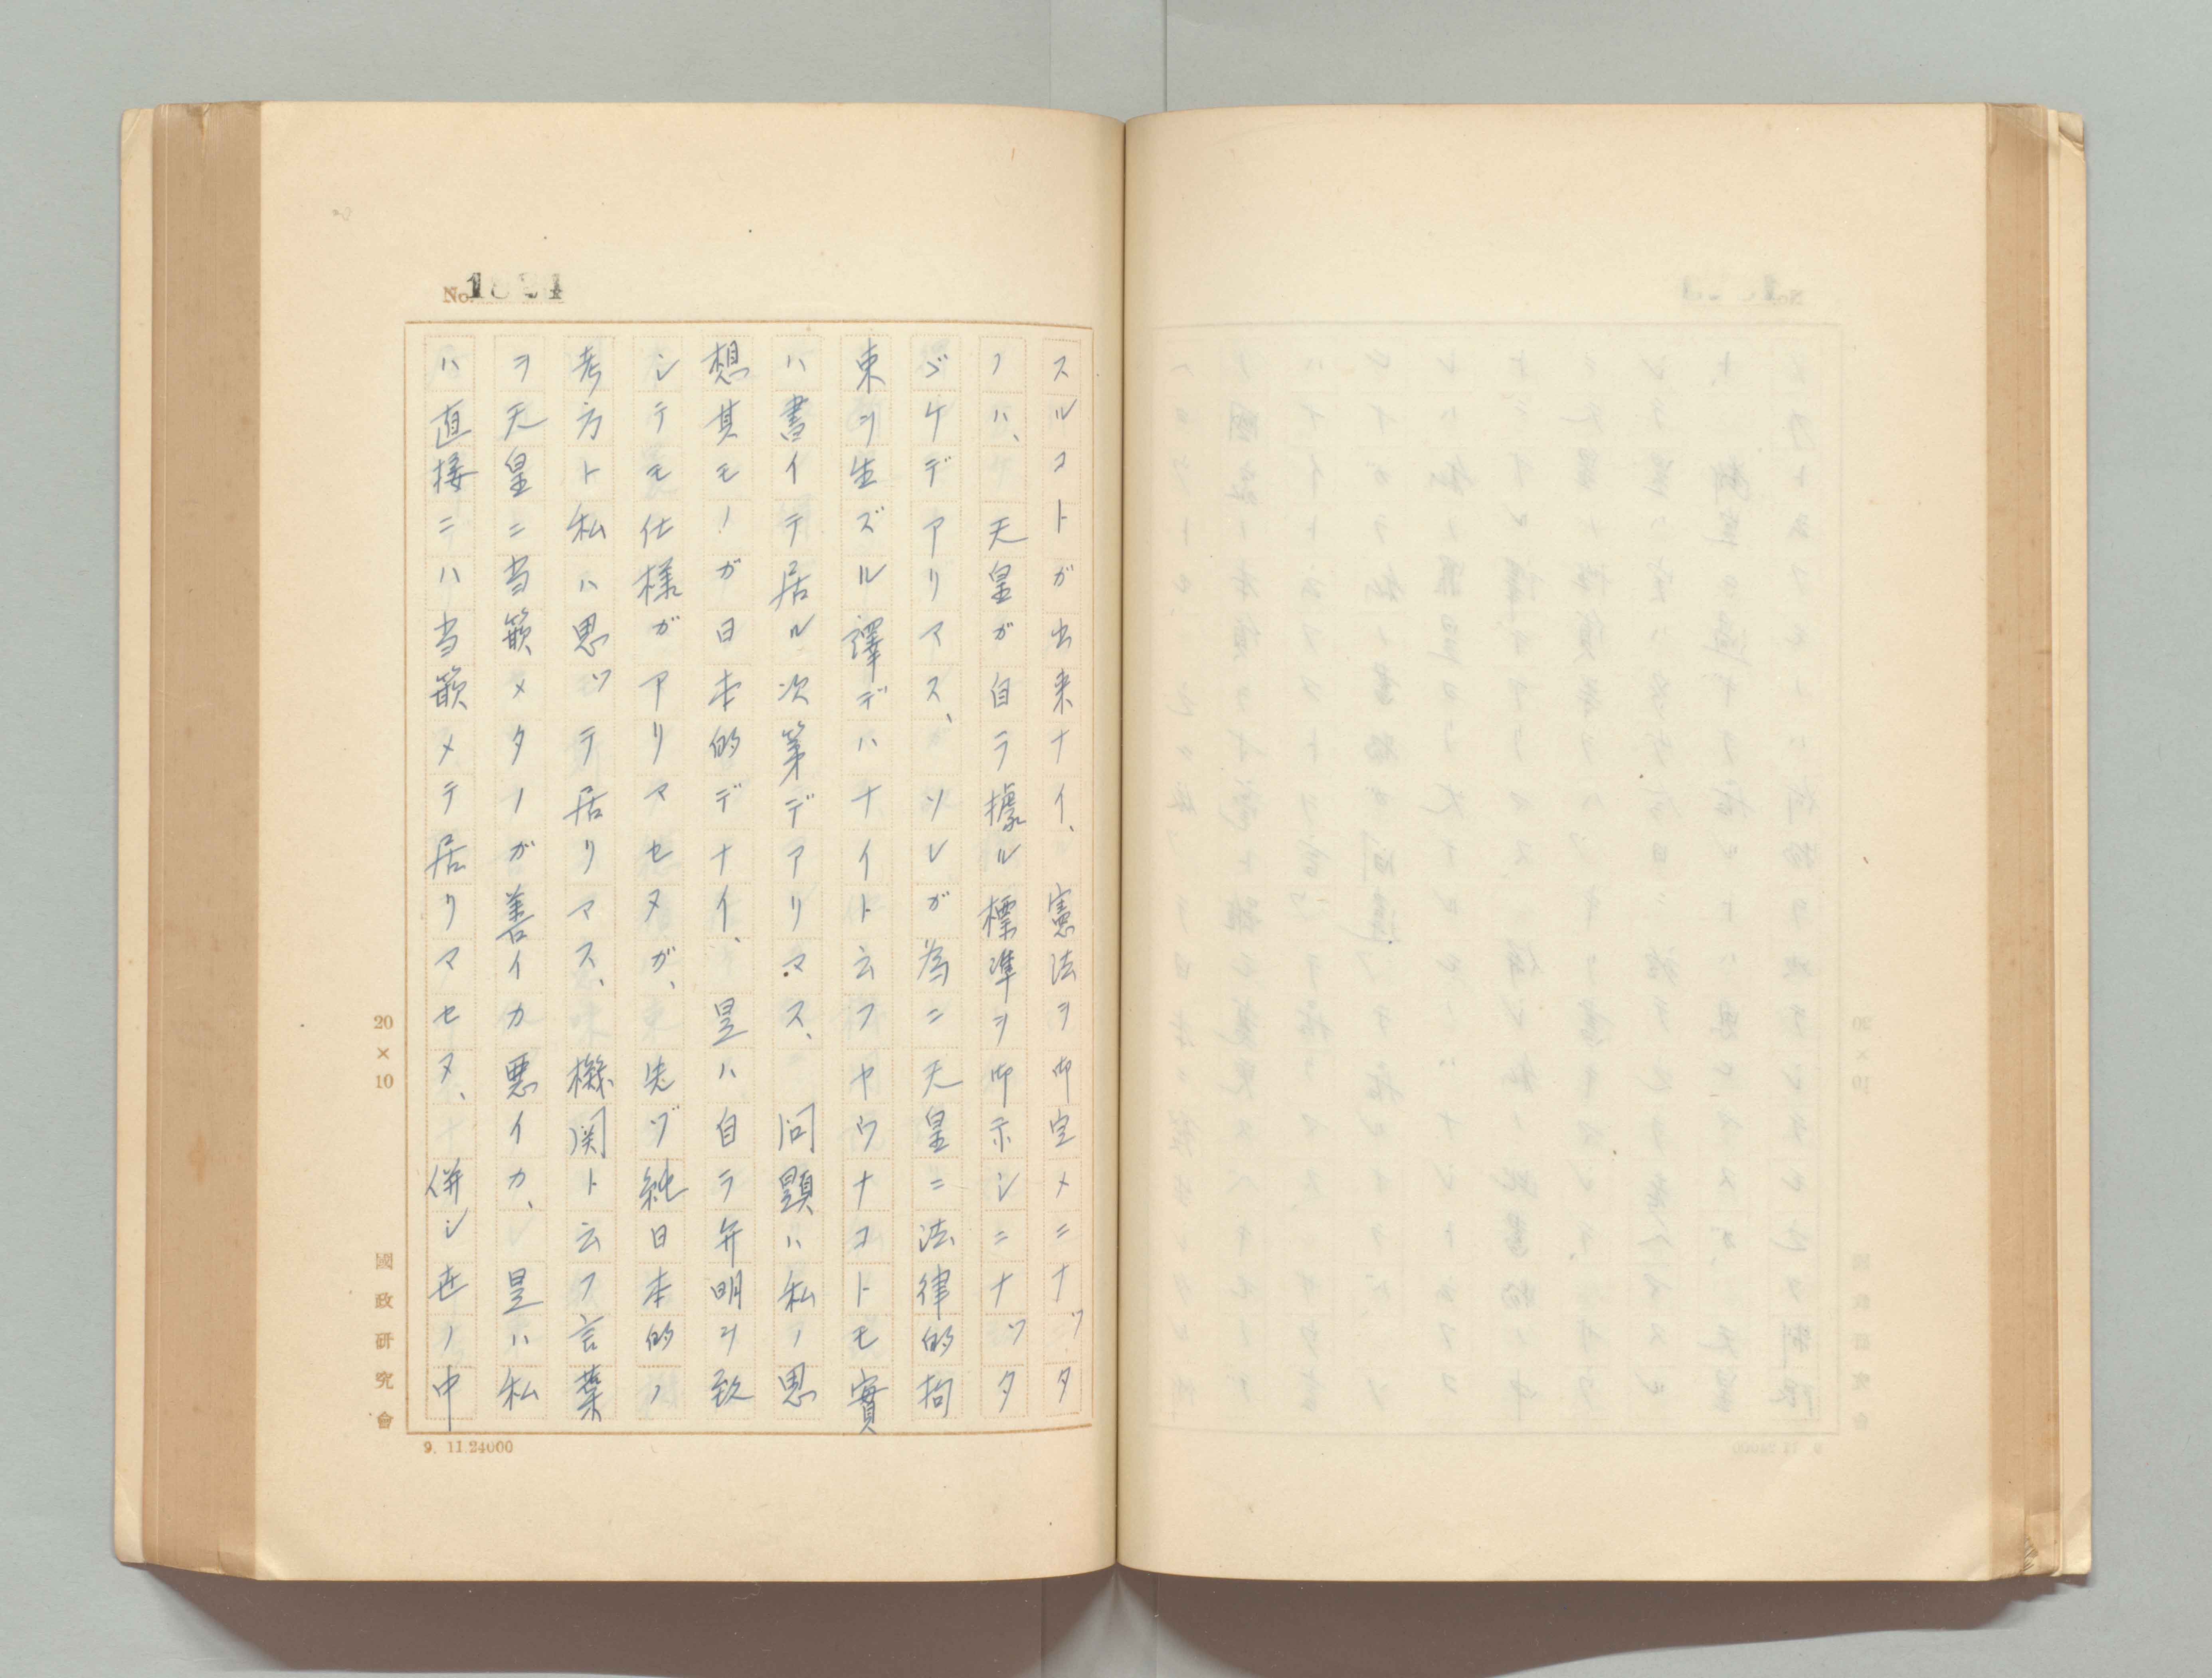 スルコトガ出来ナイ、憲法ヲ御定メニナツタ
ノハ、天皇ガ自ラ據ル標準ヲ御示シニナツタ
ゞケデアリマス、ソレガ為ニ天皇ニ法律的拘
束ヲ生ズル譯デハナイト云フヤウナコトモ實
ハ書イテ居ル次第デアリマス、問題ハ私ノ思
想其モノガ日本的デナイ、是ハ自ラ弁明ヲ致
シテモ仕様ガアリマセヌガ、先ヅ純日本的ノ
考方ト私ハ思ツテ居リマス、機関ト云フ言葉
ヲ天皇ニ当篏メタノガ善イカ悪イカ、是ハ私
ハ直接ニハ当篏メテ居リマセヌ、併シ世ノ中
No.
20×10
國政研究會
9. 11.24000